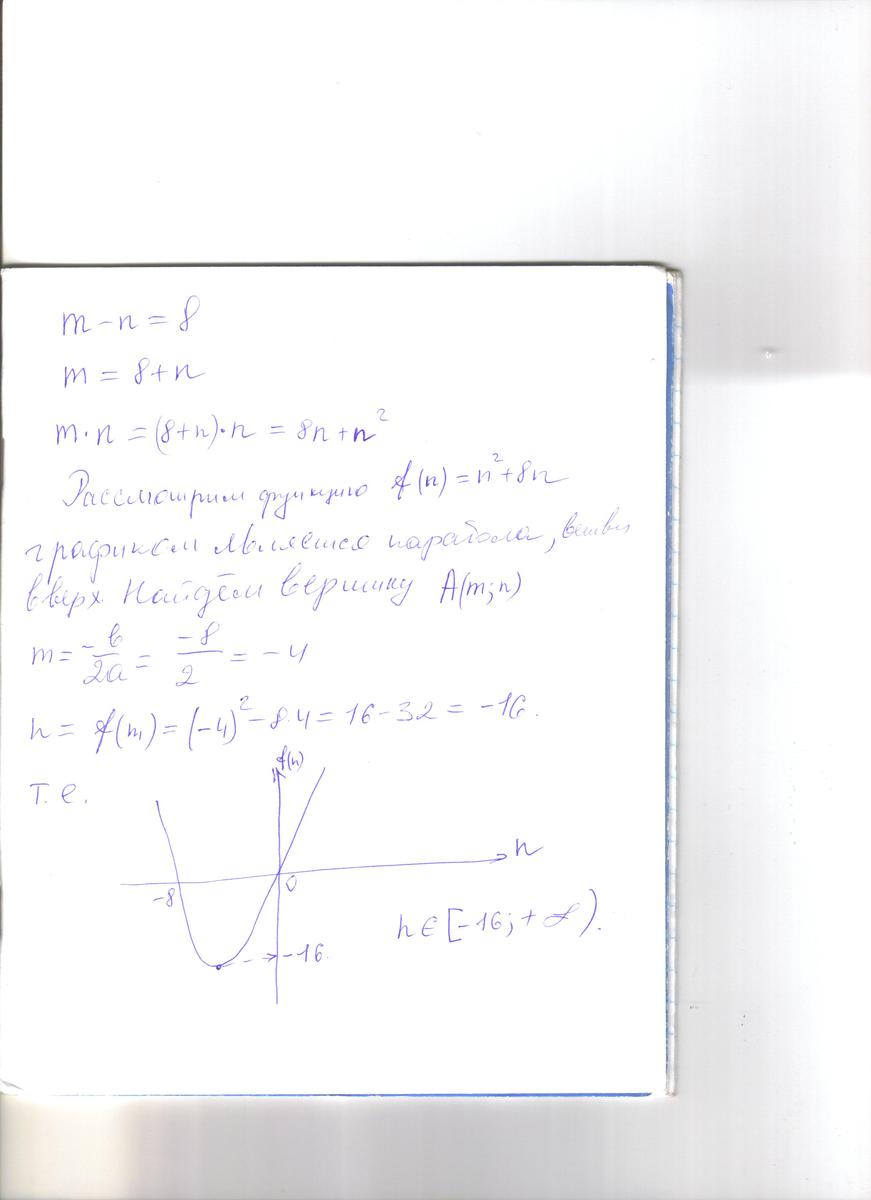 m - n = 8
m = 8 + n
m · n = (8+n) · n = 8n + n²
Рассмотрим функцию f(n) = n² + 8n
графиком является парабола, ветви
вверх. Найдём вершину A(m; n)
m = -b/2a = -8/2 = -4
n = f(m) = (-4)² - 8·4 = 16 - 32 = -16.
т.е.
f(n)
n
-8
0
-16
n ∈ [-16; +∞).